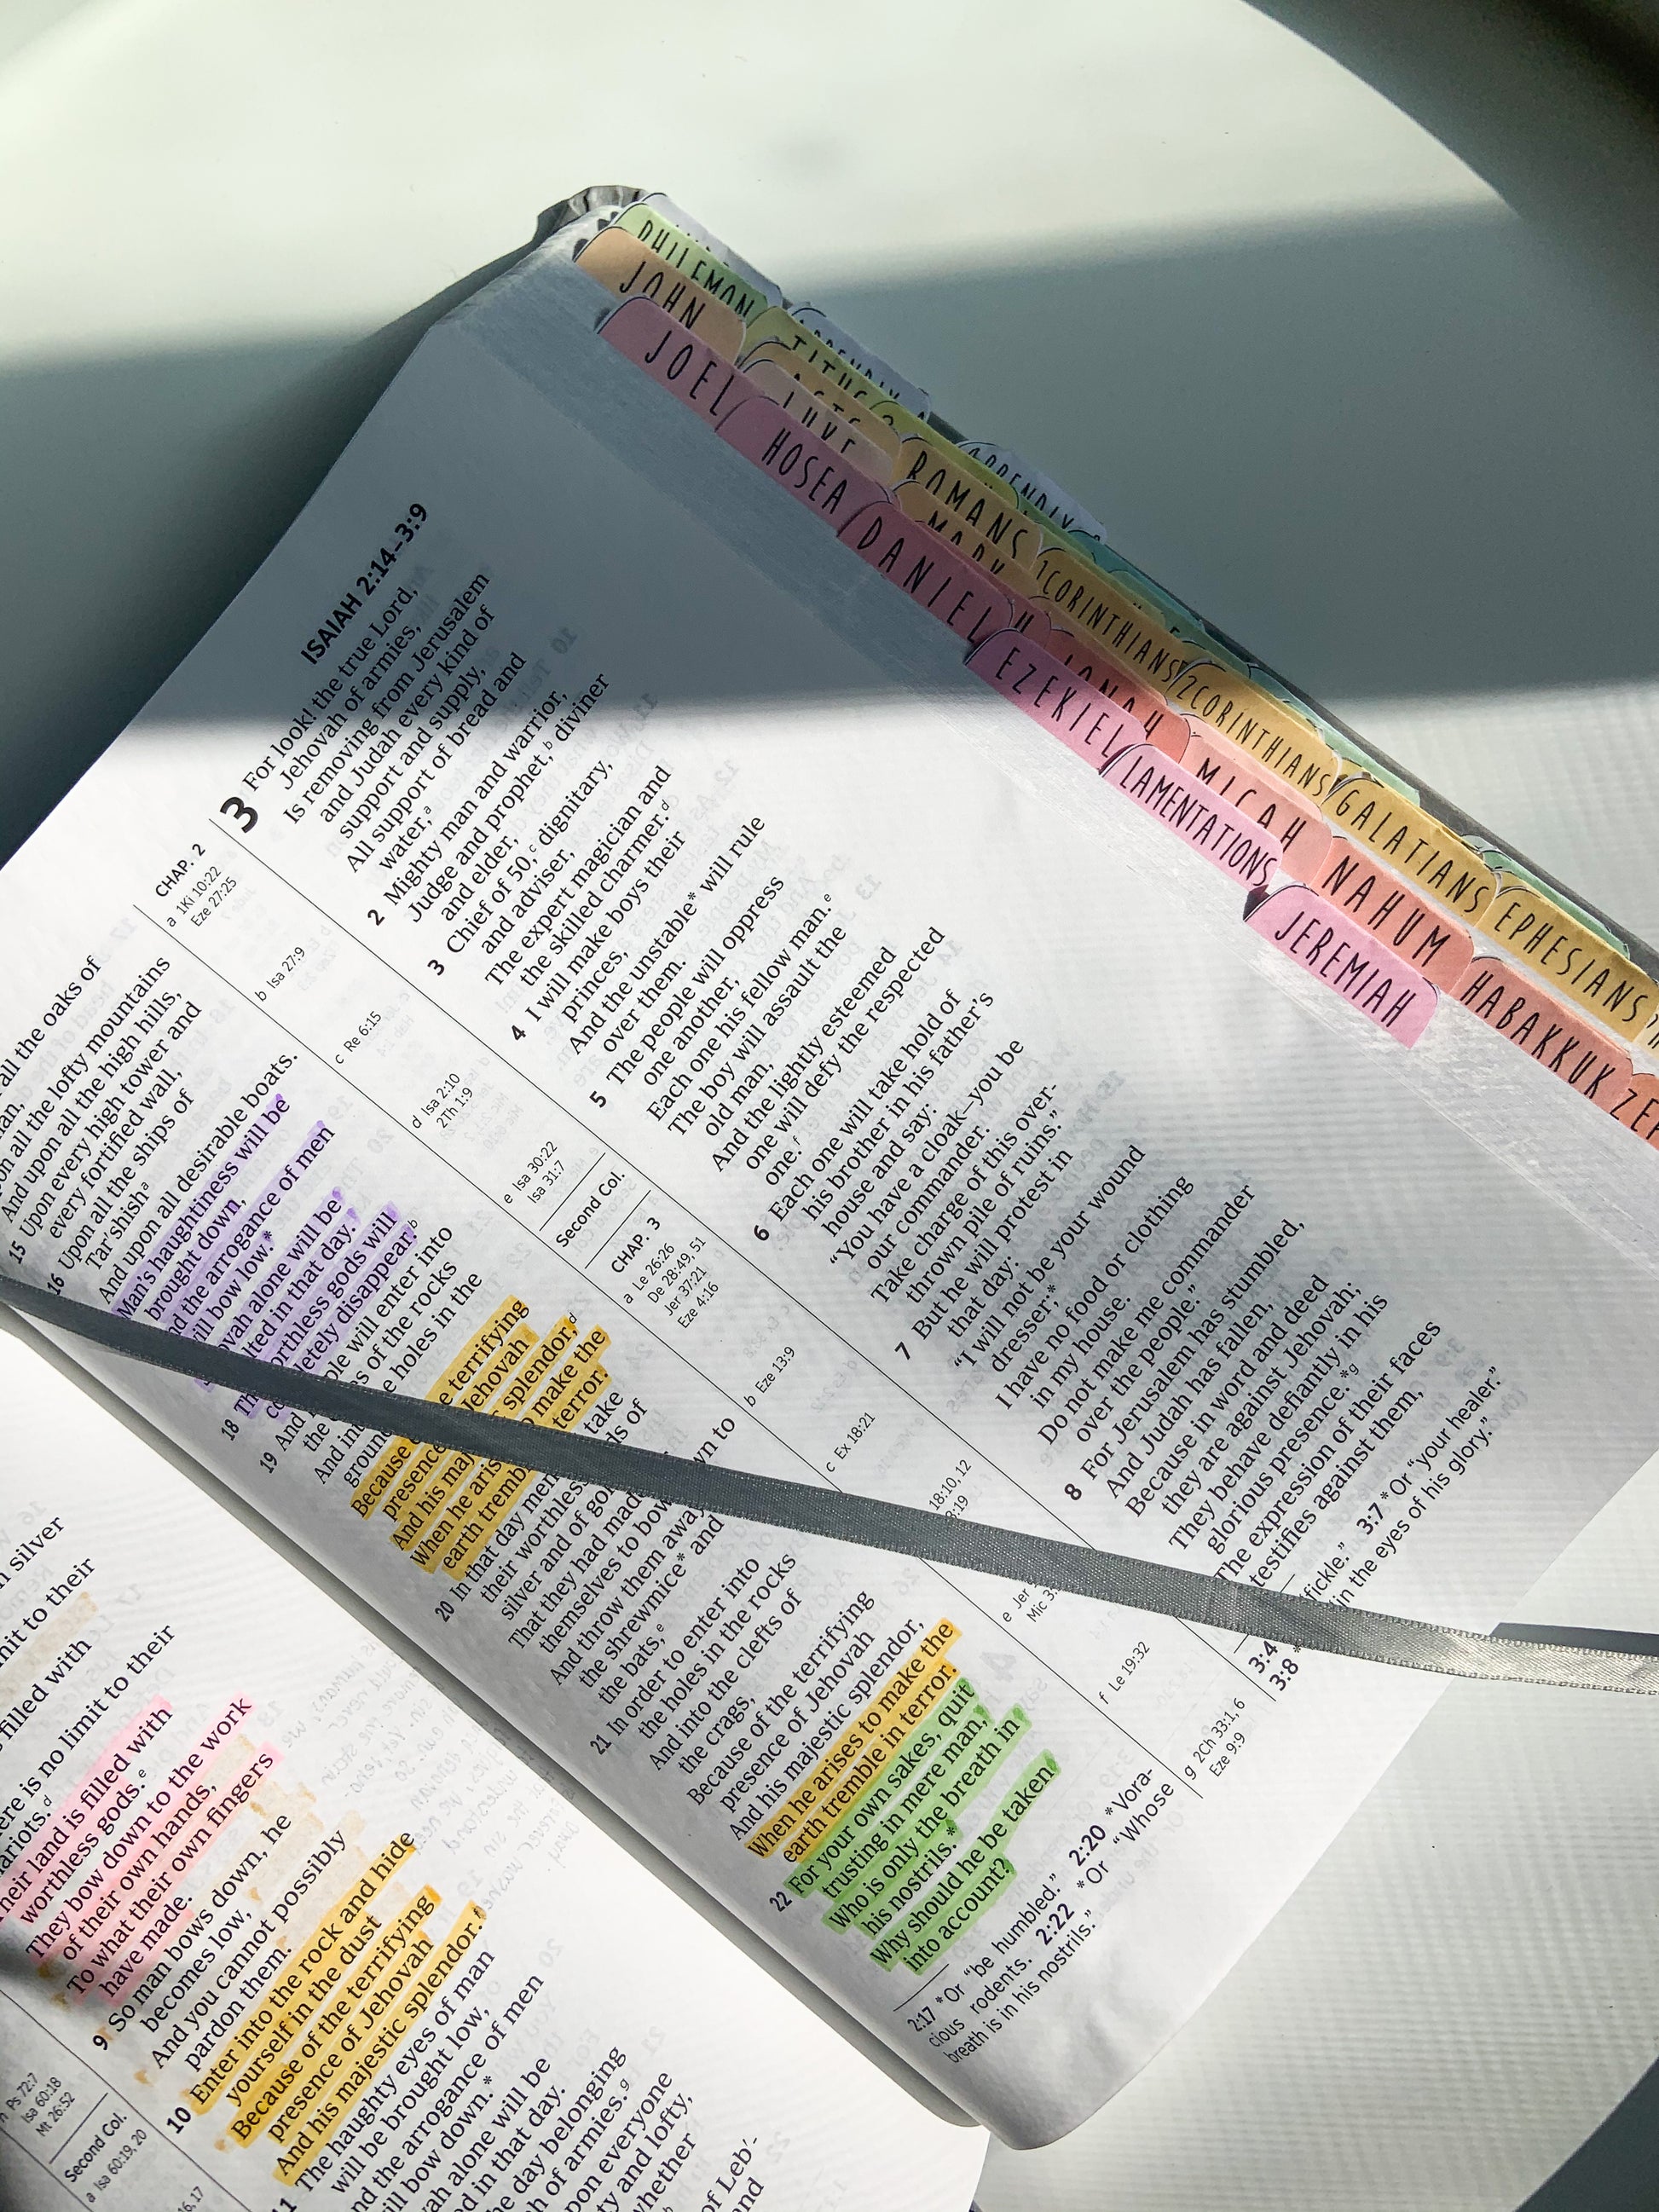 n silver
nit to their
filled with
ere is no limit to their
ariots.d
heir land is filled with
worthless gods.e
They bow down to the work
of their own hands,
To what their own fingers
have made.
9 So man bows down, he
becomes low,
And you cannot possibly
pardon them.
10 Enter into the rock and hide
yourself in the dust
Because of the terrifying
presence of Jehovah
And his majestic splendor.f
11 The haughty eyes of man
will be brought low,
nd the arrogance of men
ill bow down.*
vah alone will be
d in that day.
he day belonging
h of armies.g
pon everyone
ty and lofty,
whether
of Leb′-
and
Ps 72:7
Isa 60:18
Mt 26:52
Second Col.
a Isa 60:19, 20
16, 17
ISAIAH 2:14–3:9
all the oaks of
on all the lofty mountains
And upon all the high hills,
15 Upon every high tower and
every fortified wall,
16 Upon all the ships of
Tar′shisha
And upon all desirable boats.
Man's haughtiness will be
brought down,
nd the arrogance of men
ill bow low.*
ovah alone will be
lted in that day.
18 Th orthless gods will
co letely disappear.b
19 And ple will enter into
the es of the rocks
And int e holes in the
groun
Because e terrifying
presence Jehovah
And his maj splendor,d
When he aris o make the
earth tremb terror.
20 In that day men take
their worthless ds of
silver and of gol
That they had made
themselves to bow wn to
And throw them away
the shrewmice* and
the bats,e
21 In order to enter into
the holes in the rocks
And into the clefts of
the crags,
Because of the terrifying
presence of Jehovah
And his majestic splendor,
When he arises to make the
earth tremble in terror.
22 For your own sakes, quit
trusting in mere man,
Who is only the breath in
his nostrils.*
Why should he be taken
into account?
CHAP. 2
a 1Ki 10:22
Eze 27:25
b Isa 27:9
c Re 6:15
d Isa 2:10
2Th 1:9
e Isa 30:22
Isa 31:7
Second Col.
CHAP. 3
a Le 26:26
De 28:49, 51
Jer 37:21
Eze 4:16
b Eze 13:9
c Ex 18:21
18:10, 12
8:19
e Jer
Mic 3:
f Le 19:32
g 2Ch 33:1, 6
Eze 9:9
3 For look! the true Lord,
Jehovah of armies,
Is removing from Jerusalem
and Judah every kind of
support and supply,
All support of bread and
water,a
2 Mighty man and warrior,
Judge and prophet,b diviner
and elder,
3 Chief of 50,c dignitary,
and adviser,
The expert magician and
the skilled charmer.d
4 I will make boys their
princes,
And the unstable* will rule
over them.
5 The people will oppress
one another,
Each one his fellow man.e
The boy will assault the
old man,
And the lightly esteemed
one will defy the respected
one.f
6 Each one will take hold of
his brother in his father's
house and say:
“You have a cloak—you be
our commander.
Take charge of this over-
thrown pile of ruins.”
7 But he will protest in
that day:
“I will not be your wound
dresser;*
I have no food or clothing
in my house.
Do not make me commander
over the people.”
8 For Jerusalem has stumbled,
And Judah has fallen,
Because in word and deed
they are against Jehovah;
They behave defiantly in his
glorious presence.*g
The expression of their faces
testifies against them,
2:17 *Or “be humbled.” 2:20 *Vora-
cious rodents. 2:22 *Or “Whose
breath is in his nostrils.”
3:4 fickle.” 3:7 *Or “your healer.”
3:8 * in the eyes of his glory.”
PHILEMON
JOHN
JOEL
TITUS
ACTS
LUKE
HOSEA
APPENDIX
ROMANS
MARK
DANIEL
1CORINTHIANS
JONAH
EZEKIEL
2CORINTHIANS
MICAH
LAMENTATIONS
GALATIANS
NAHUM
JEREMIAH
EPHESIANS
HABAKKUK
ZEP